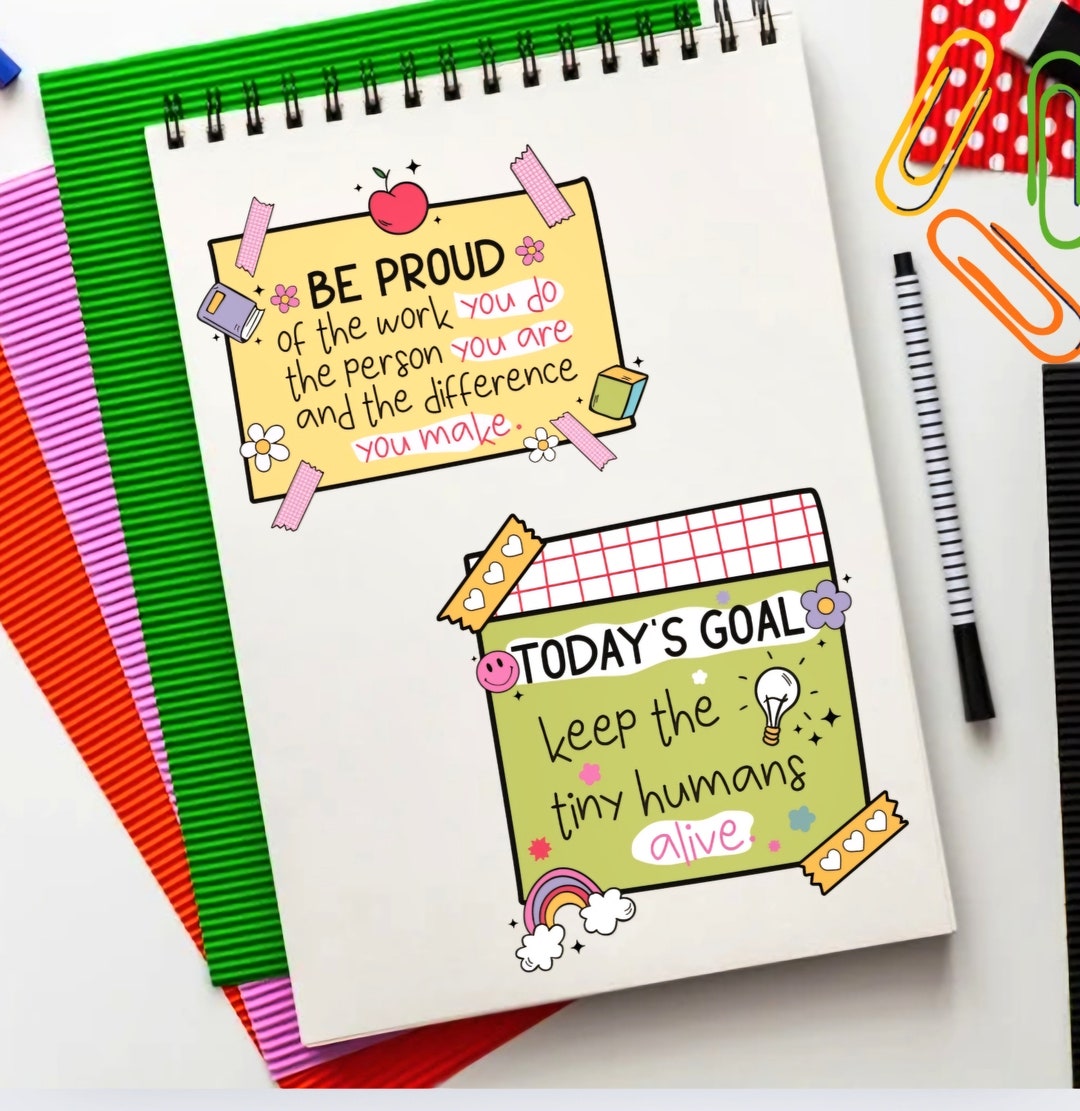 BE PROUD
of the work you do
the person you are
and the difference
you make.
TODAY'S GOAL
keep the
tiny humans
alive.